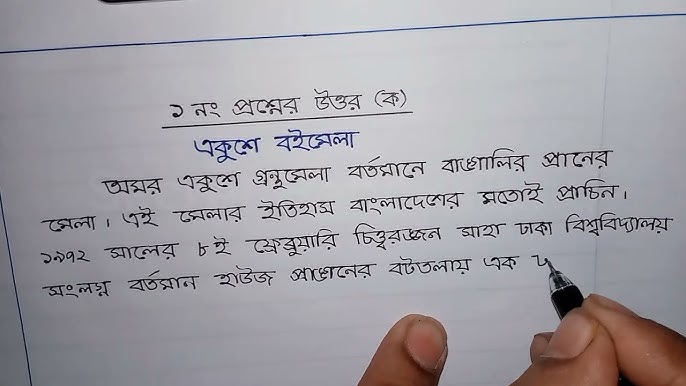 ১ নং প্রশ্নের উত্তর (ক)
একুশে বইমেলা
অমর একুশে গ্রন্থমেলা বর্তমানে বাঙালির প্রানের
মেলা। এই মেলার ইতিহাস বাংলাদেশের মতোই প্রাচিন।
১৯৭২ সালের ৮ই ফেব্রুয়ারি চিত্ত্বরঞ্জন সাহা ঢাকা বিশ্ববিদ্যালয়
সংলগ্ন বর্তমান হাউজ প্রাঙ্গনের বটতলায় এক